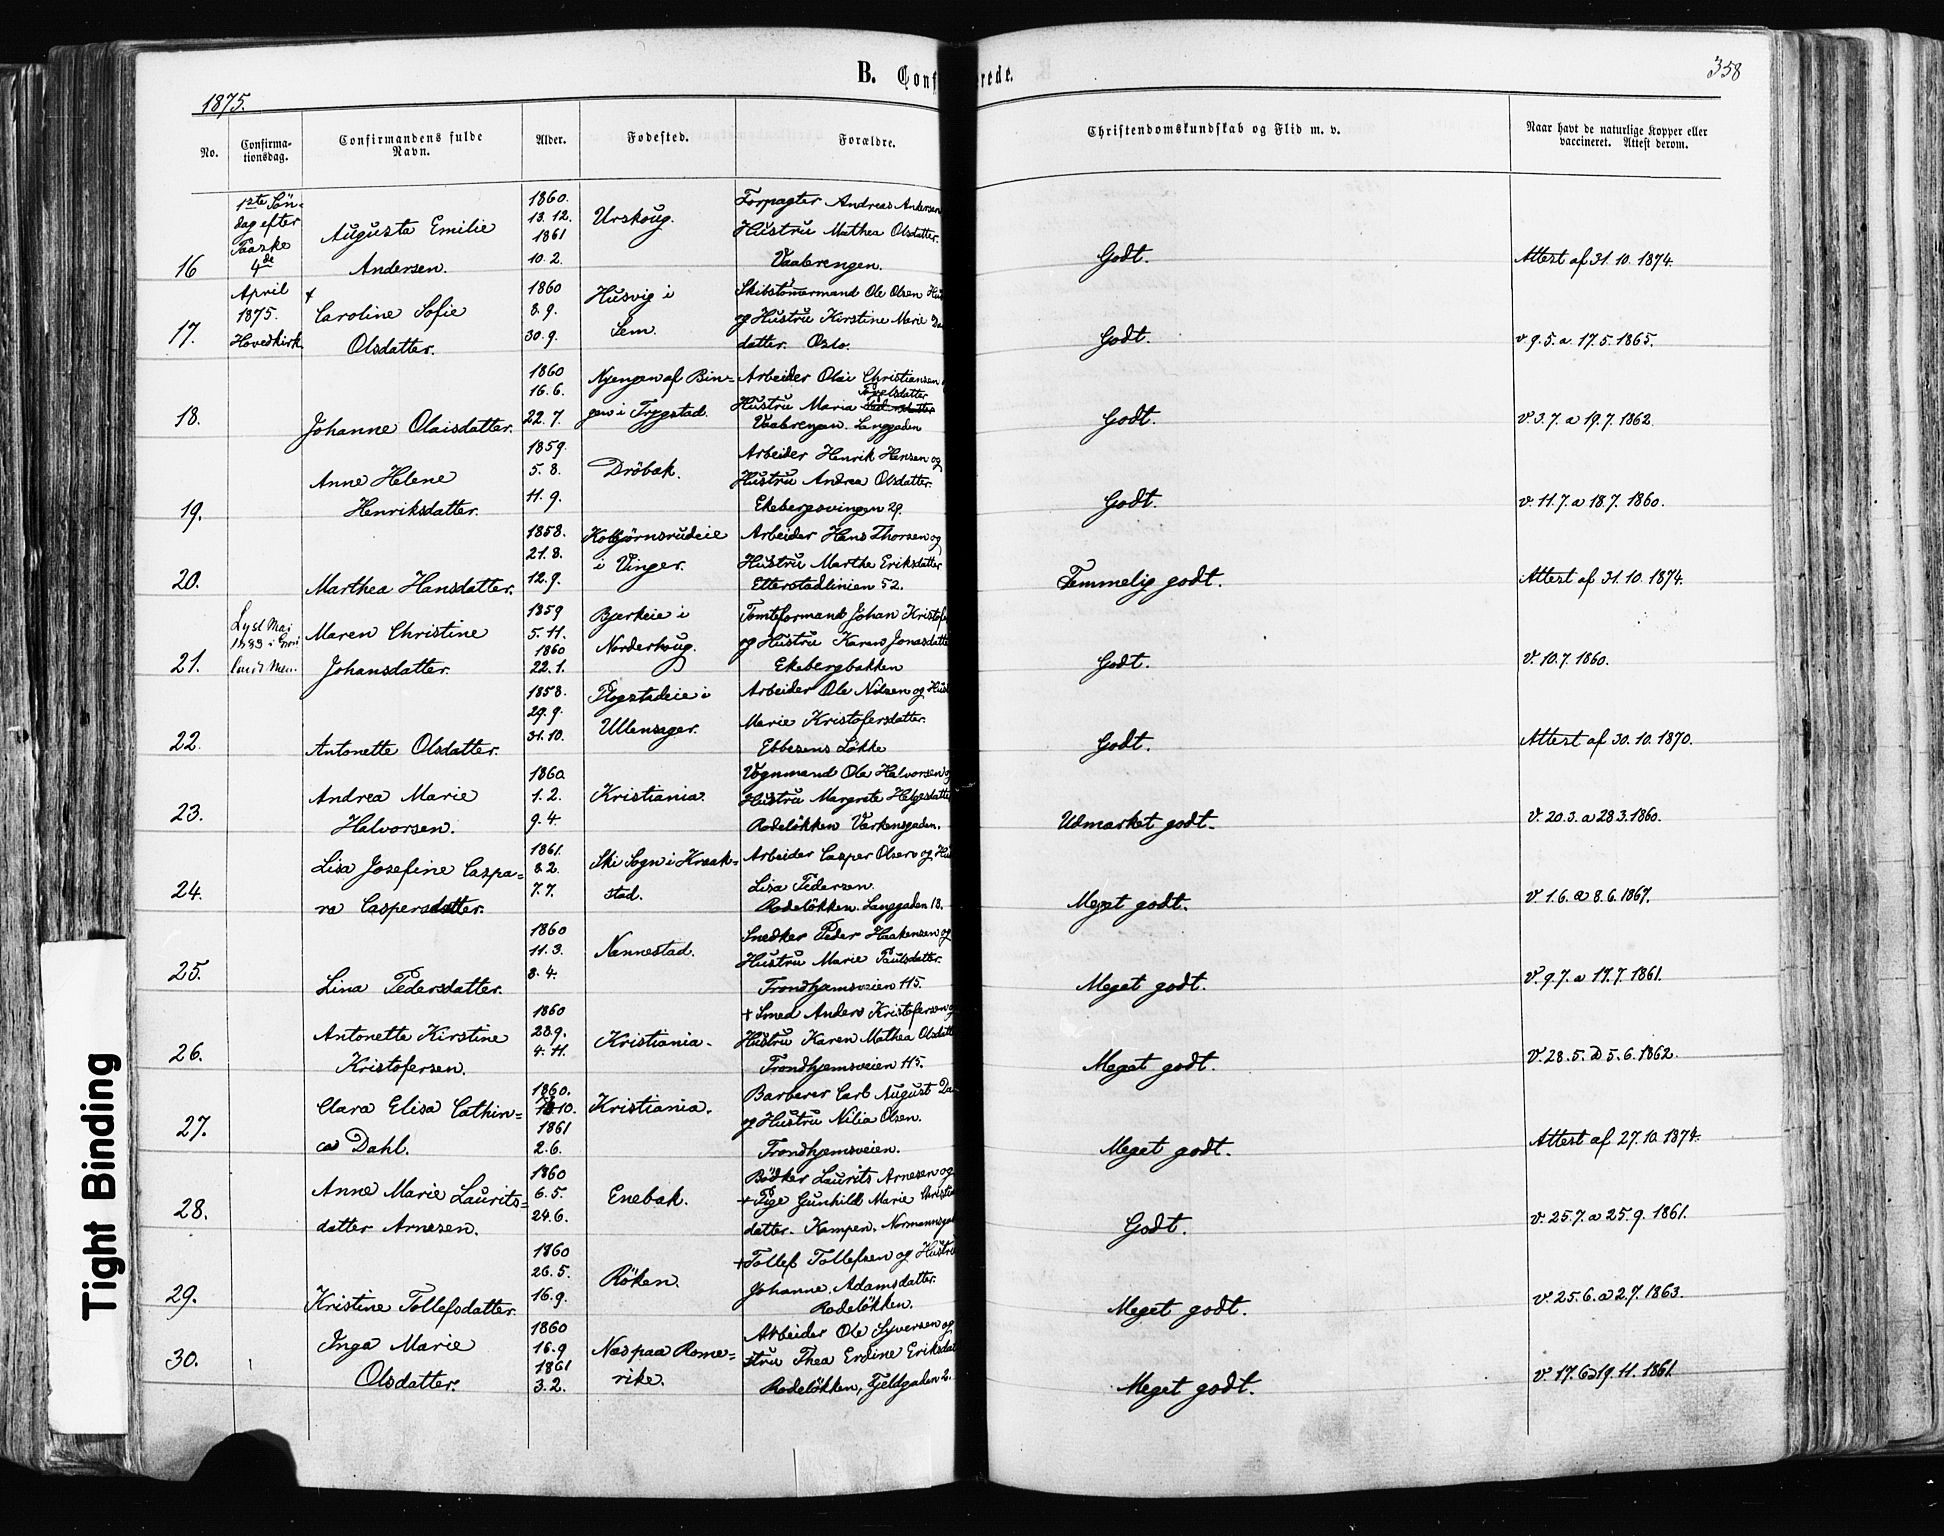 B. Conf rede.
358
1875.
No.
Confirma-
tionsdag.
Confirmandens fulde
Navn.
Alder.
Fødested.
Forældre.
Christendomskundskab og Flid m. v.
Naar havt de naturlige Kopper eller
vaccineret. Attest derom.
1ste Sön-
dag efter
Paaske
4de
April
1875.
Hovedkirk.
16
Augusta Emilie
Andersen.
1860.
13. 12.
1861
10. 2.
Urskoug.
Forpagter Andreas Andersen
Hustru Mathea Olsdatter.
Vaalerengen.
Godt.
Attest af 31. 10. 1874.
17.
Caroline Sofie
Olsdatter.
1860
8. 9.
30. 9.
Husvig i
Sem.
Skibstömermand Ole Olsen
og Hustru Kirstine Marie
datter. Oslo.
Godt.
v 9. 5. a. 17. 5. 1865.
18.
Johanne Olaisdatter.
1860
16. 6.
22. 7.
Nyengen af Bin=
gen i Trygstad.
Arbeider Olai Christiansen
Hustru Maria
Vaalerengen. Langgaden
Godt.
v. 3. 7. a 19. 7. 1862.
19.
Anne Helene
Henriksdatter.
1859.
5. 8.
11. 9.
Dröbak.
Arbeider Henrik Hansen og
Hustru Andrea Olsdatter.
Ekebergsvingen 29.
Godt.
v. 11. 7. a 18. 7. 1860.
20.
Marthea Hansdatter.
1858.
21. 8.
12. 9.
Kolbjörnsrudeie
i Vinger.
Arbeider Hans Thorsen og
Hustru Marthe Eriksdatter
Etterstadlinien 52.
Temmelig godt.
Attest af 31. 10. 1874.
21.
Lyst Mai
Maren Christine
Johansdatter.
1859
5. 11.
1860
22. 1.
Bjerkeie i
Norderhoug.
Tomteformand Johan Kristof
og Hustru Karen Jonasdatte
Ekebergbakken
Godt.
v. 10. 7. 1860.
22.
Antonette Olsdatter.
1858.
29. 9.
31. 10.
Plogstadeie i
Ullensager.
Arbeider Ole Nilsen og Hus
Marie Kristofersdatter.
Ebbesens Løkke
Godt.
Attest af 30. 10. 1870.
23.
Andrea Marie
Halvorsen.
1860.
1. 2.
9. 4.
Kristiania.
Vognmand Ole Halvorsen
Hustru Margrete Helgesdatte
Rodeløkken Verkensgaden.
Udmærket godt.
v. 20. 3. a 28 3. 1860.
24.
Lisa Josefine Caspa=
ra Caspersdatter.
1861.
8. 2.
7. 7.
Ski Sogn i Kraak=
stad.
Arbeider Casper Olsen og Hu
Lisa Pedersen.
Rodeløkken. Langgaden 18.
Meget godt.
v. 1. 6. a 8. 6. 1867.
25.
Lina Pedersdatter.
1860
11. 3.
8. 4.
Nannestad.
Snedker Peder Haakensen og
Hustru Marie Paulsdatter.
Trondhjemsveien 115.
Meget godt.
v. 9. 7. a 17. 7. 1861.
26.
Antonette Kirstine
Kristofersen.
1860
28. 9.
4. 11.
Kristiania.
+ Smed Anders Kristofersen
Hustru Karen Mathea Olsdatt
Trondhjemsveien 115.
Meget godt.
v. 28. 5. a 5. 6. 1862.
27.
Clara Elisa Cathin=
ca Dahl.
1860.
10.
1861
2. 6.
Kristiania.
Barberer Carl August Da
og Hustru Nilia Olsen.
Trondhjemsveien.
Meget godt.
Attest af 27. 10. 1874.
28.
Anne Marie Laurits=
datter Arnesen.
1860
6. 5.
24. 6.
Enebak.
Bödker Laurits Arnesen og
+ Pige Gunhild Marie Christia
datter. Kampen. Normannsga
Godt.
v. 25. 7. a 25. 9. 1861.
29.
Kristine Tollefsdatter.
1860
26. 5.
16. 9.
Röken.
+ Tollef Tollefsen og Hustru
Johanne Adamsdatter.
Rodeløkken.
Meget godt.
v. 25. 6. a 2. 7. 1863.
30.
Inga Marie
Olsdatter.
1860
16. 9
1861
3. 2.
Næs paa Rome=
rike.
Arbeider Ole Syversen og
stru Thea Erdine Eriksdat
Rodeløkken, Fjeldgaden 2.
Meget godt.
v. 17. 6 a 19. 11. 1861.
Tight Binding